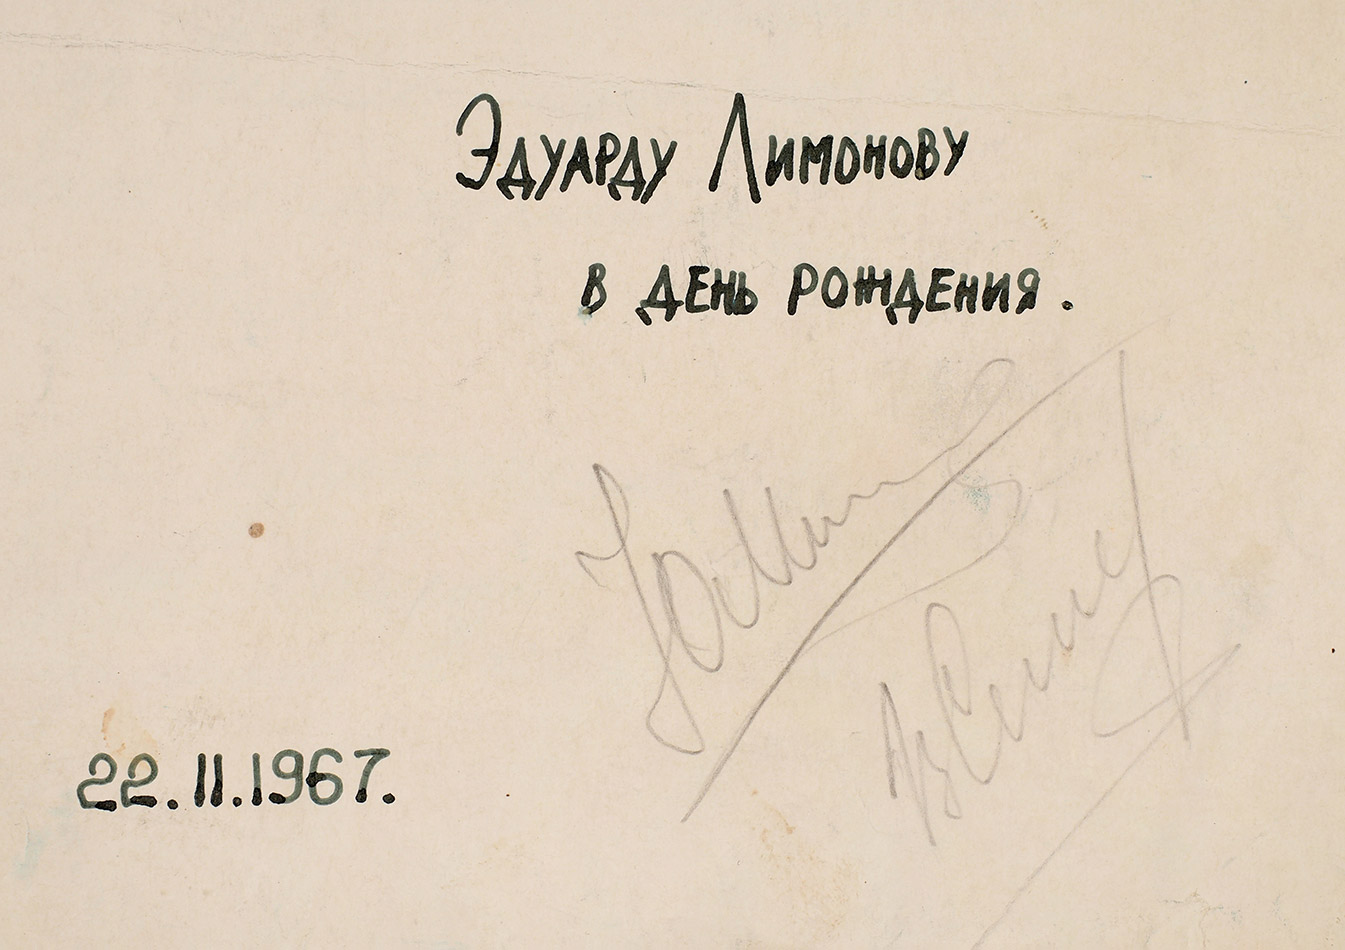 Эдуарду Лимонову
в день рождения.
22.11.1967.